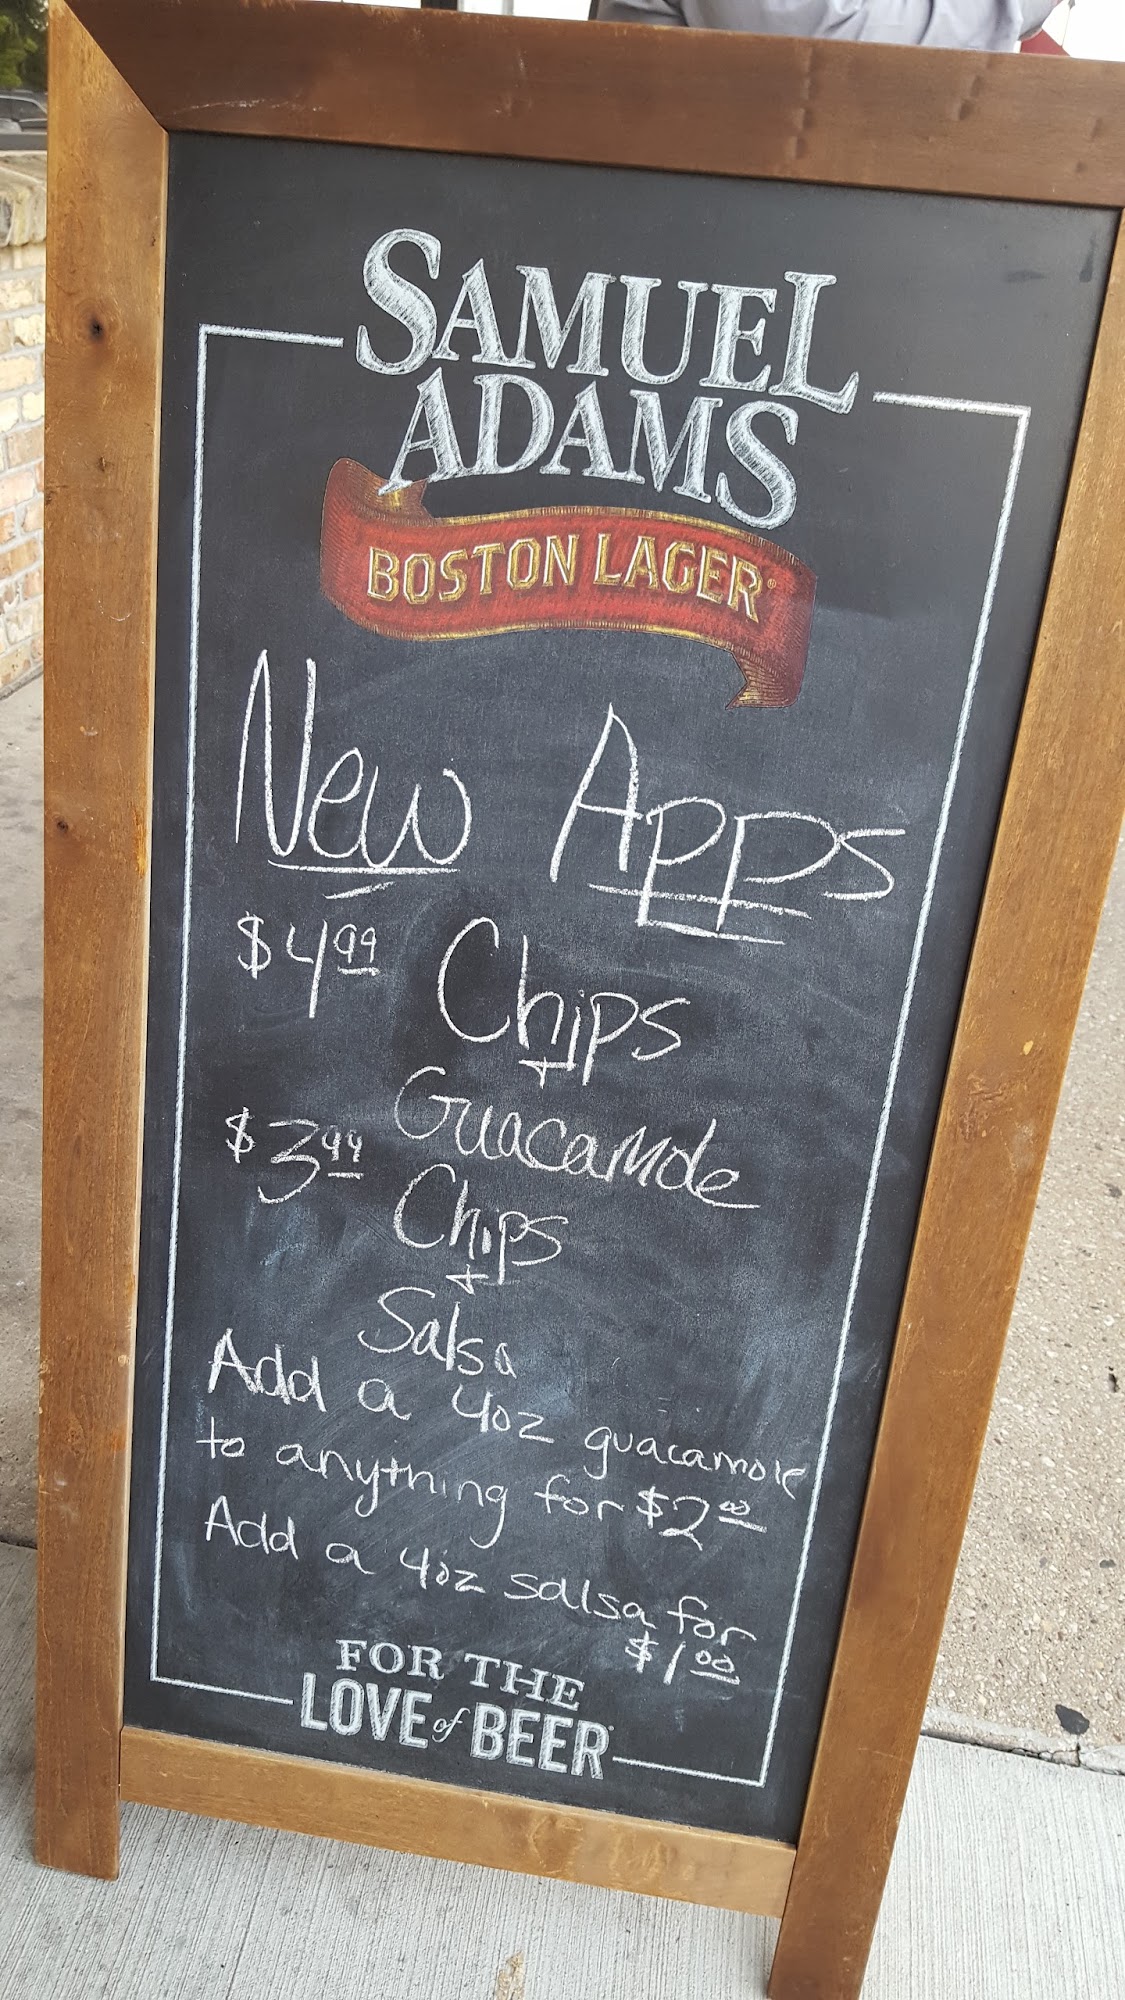 SAMUEL
ADAMS
BOSTON LAGER®
New Apps
$4.99 Chips
+
Guacamole
$3.99 Chips
+
Salsa
Add a 4oz guacamole
to anything for $2.00
Add a 4oz salsa for
$1.00
FOR THE
LOVE of BEER